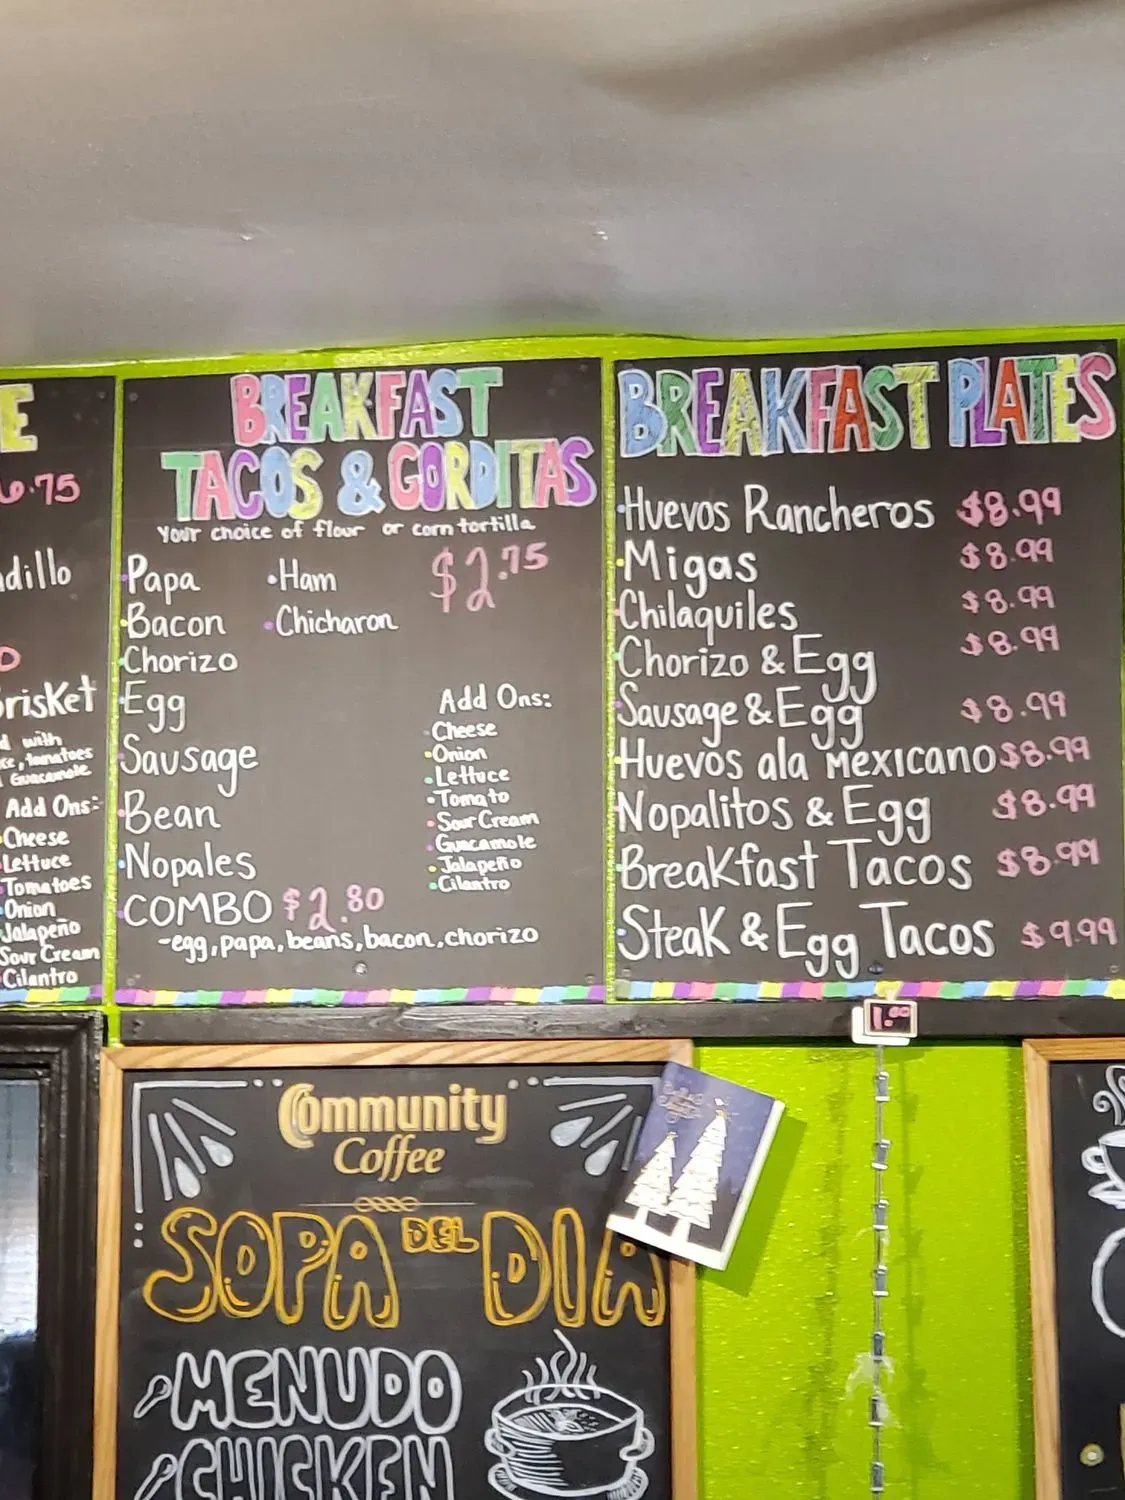 E
6.75
dillo
0
risket
d with
, Tomatoes
Guacamole
Add Ons:
Cheese
Lettuce
Tomatoes
Onion
Jalapeño
Sour Cream
Cilantro
BREAKFAST
TACOS & GORDITAS
Your choice of flour or corn tortilla
•Papa •Ham $2.75
•Bacon •Chicharon
•Chorizo
•Egg
•Sausage
•Bean
•Nopales
•COMBO $2.80
-egg, papa, beans, bacon, chorizo
Add Ons:
•Cheese
•Onion
•Lettuce
•Tomato
•Sour Cream
•Guacamole
•Jalapeño
•Cilantro
BREAKFAST PLATES
•Huevos Rancheros $8.99
•Migas $8.99
•Chilaquiles $8.99
•Chorizo & Egg $8.99
•Sausage & Egg $8.99
•Huevos ala Mexicano $8.99
•Nopalitos & Egg $8.99
•Breakfast Tacos $8.99
•Steak & Egg Tacos $9.99
Community
Coffee
SOPA DEL DIA
MENUDO
CHICKEN